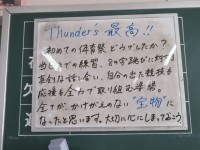 Thunder's 最高!!
初めての体育祭 どうでしたか?
当日までの練習、8の字跳びに対する
真剣な競い合い、自分の出た種目も
応援も全力で取り組む姿勢。
全てが、かけがえのない"宝物"に
なったと思います。大切に心にしまっておこう